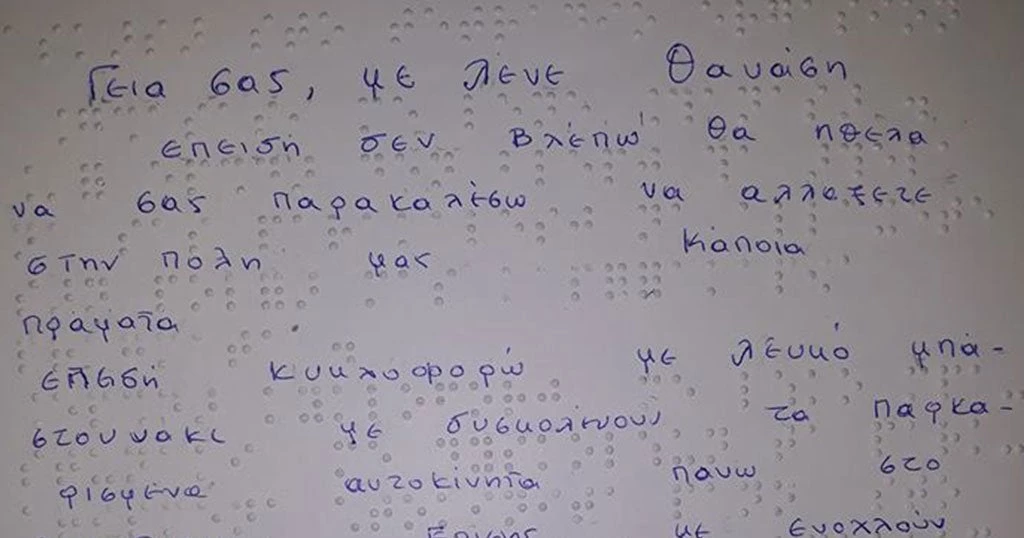 Γεια σας, με λένε Θανάση
επειδή δεν βλέπω θα ηθελα
να σας παρακαλέσω να αλλαξετε
στην πόλη μας κάποια
πραματα
επειδή κυκλοφορώ με λευκό μπα-
στουνάκι με δυσκολεύουν τα παρκα-
ρισμενα αυτοκίνητα πανω στο
Επίσης με ενοχλούν